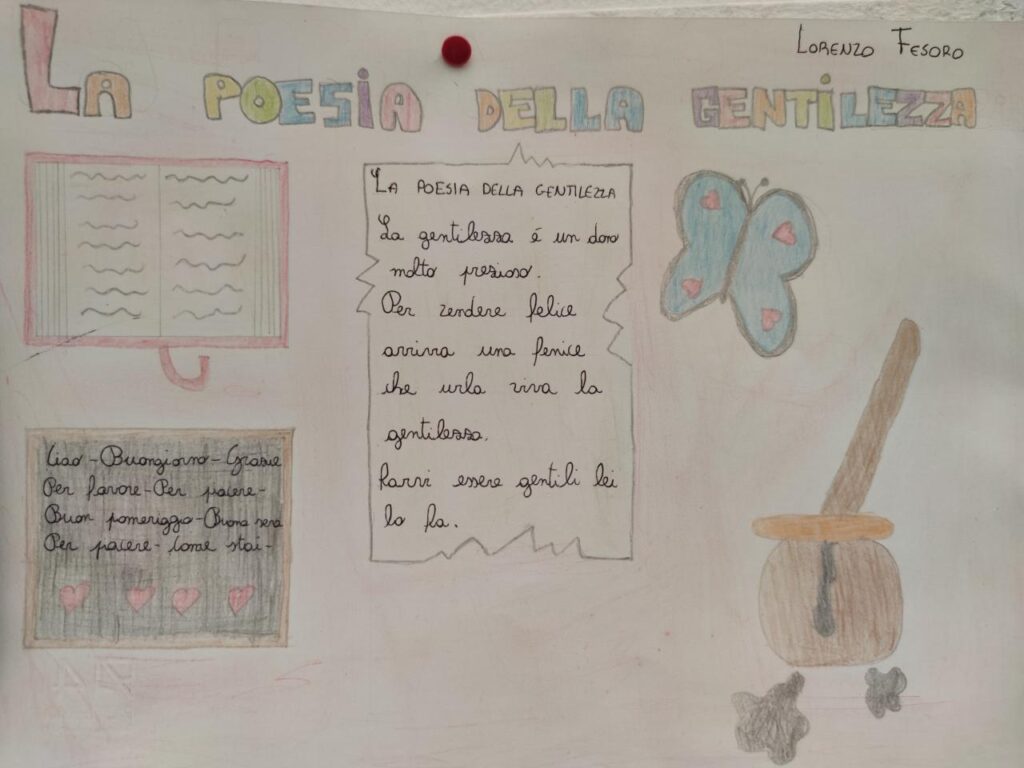 Lorenzo Fesoro
La poesia della gentilezza
La poesia della gentilezza
La gentilezza é un dono
molto prezioso.
Per rendere felice
arriva una fenice
che urla viva la
gentilezza.
Farvi essere gentili lei
lo fa.
Ciao - Buongiorno - Grazie
Per favore - Per piacere -
Buon pomeriggo - Buona sera
Per piacere - Come stai -